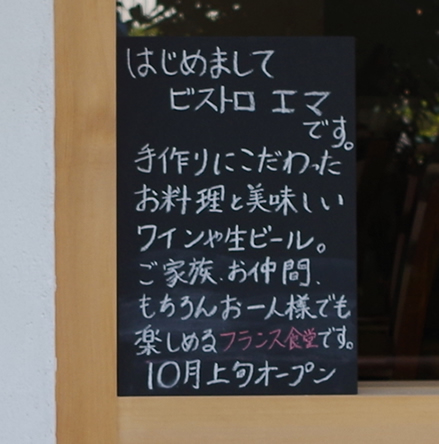 はじめまして
ビストロ エマ
です。
手作りにこだわった
お料理と美味しい
ワインや生ビール。
ご家族、お仲間、
もちろんお一人様でも
楽しめるフランス食堂です。
10月上旬オープン